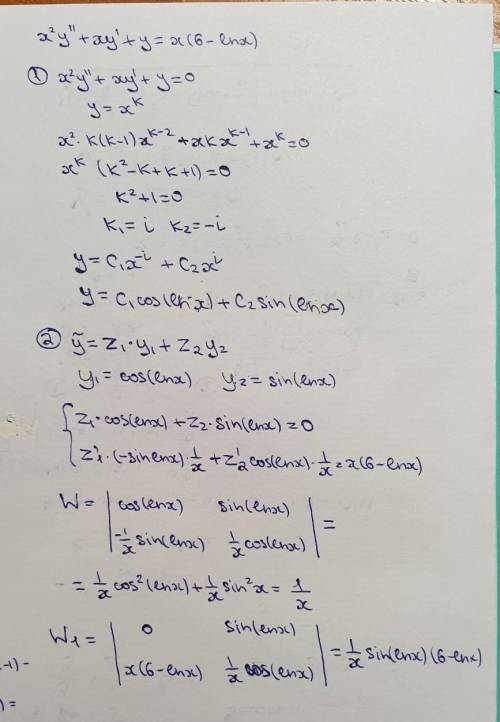 x²y'' + xy' + y = x(6 - lnx)
① x²y'' + xy' + y = 0
y = x^k
x² · k(k-1)x^(k-2) + xkx^(k-1) + x^k = 0
x^k (k² - k + k + 1) = 0
k² + 1 = 0
k₁ = i k₂ = -i
y = C₁x^(-i) + C₂x^i
y = C₁cos(lnx) + C₂sin(lnx)
② ỹ = z₁ · y₁ + z₂y₂
y₁ = cos(lnx) y₂ = sin(lnx)
{ z₁' cos(lnx) + z₂ · sin(lnx) = 0
z₁' · (-sinlnx) · 1/x + z₂' cos(lnx) · 1/x = x(6 - lnx)
W = | cos(lnx) sin(lnx) |
| -1/x sin(lnx) 1/x cos(lnx) | =
= 1/x cos²(lnx) + 1/x sin²x = 1/x
W₁ = | 0 sin(lnx) |
| x(6 - lnx) 1/x cos(lnx) | = 1/x sin(lnx)(6 - lnx)
-1) -
) =